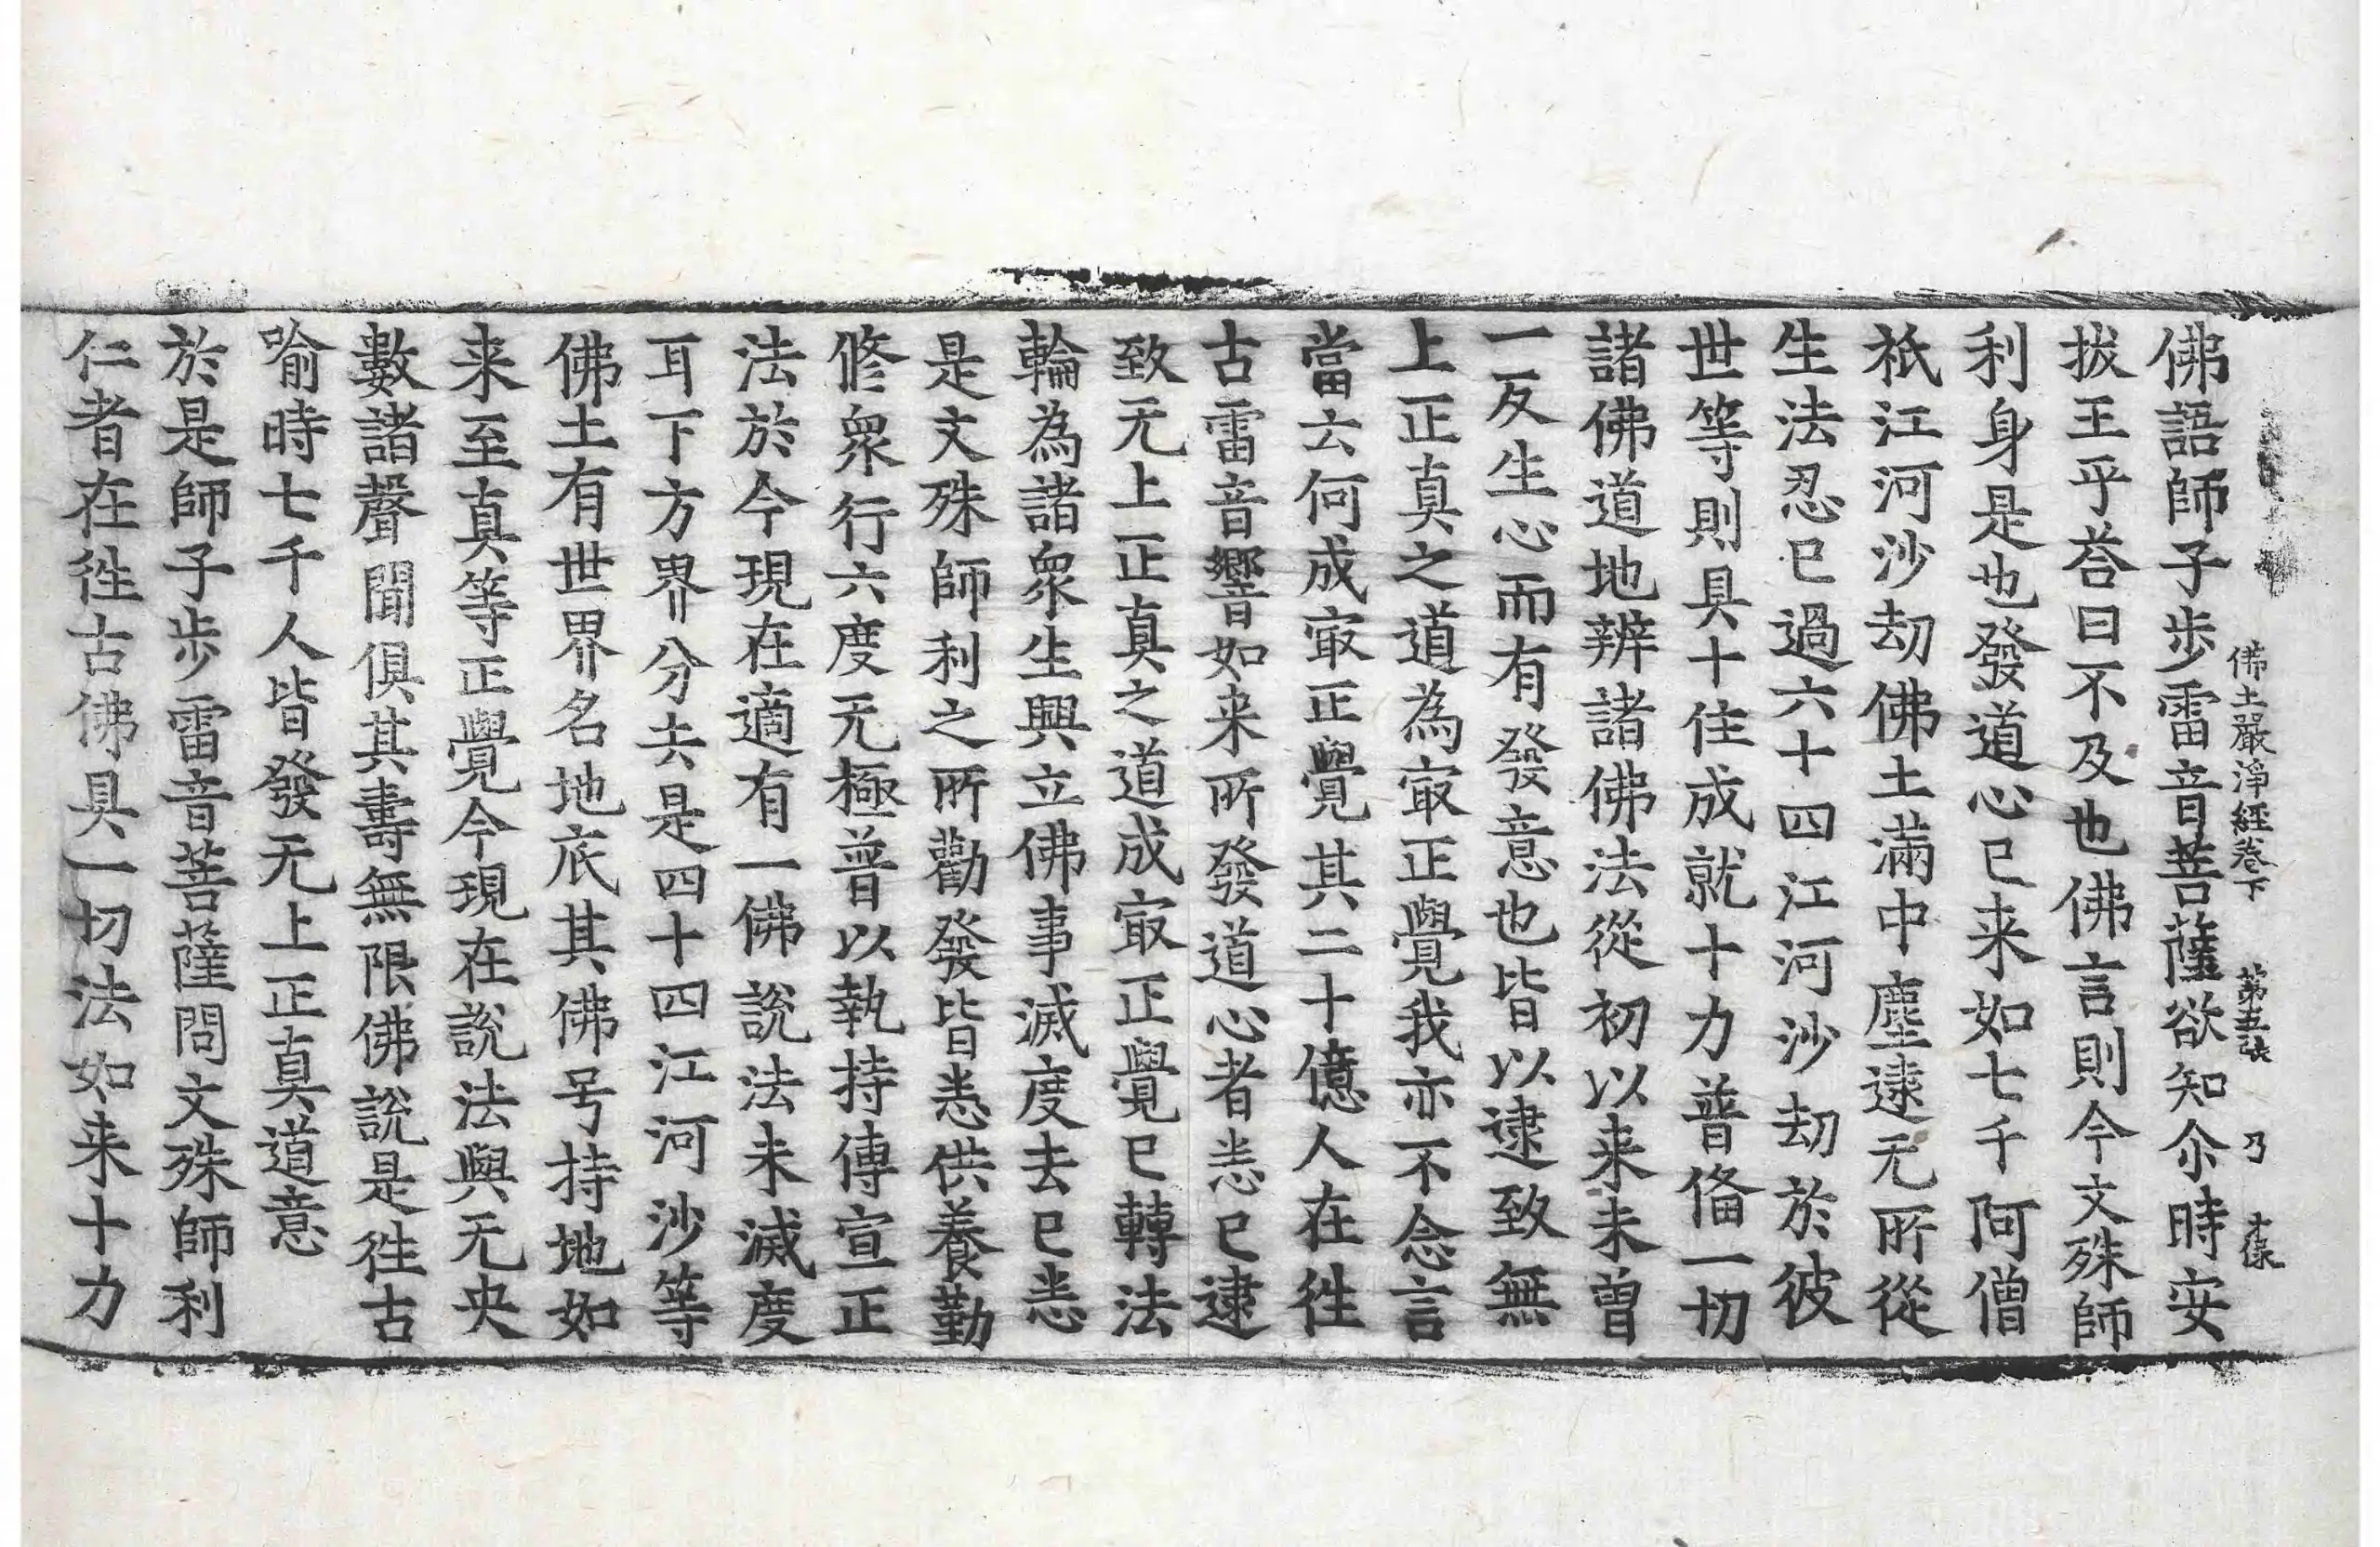 佛土嚴淨經卷下 第五張 乃
佛語師子步雷音菩薩欲知尒時安
拔王乎荅曰不及也佛言則今文殊師
利身是也發道心已来如七千阿僧
祇江河沙劫佛土滿中塵逮无所從
生法忍已過六十四江河沙劫於彼
世等則具十住成就十力普俻一切
諸佛道地辨諸佛法從初以来未曾
一反生心而有發意也皆以逮致無
上正真之道為㝡正覺我亦不念言
當云何成㝡正覺其二十億人在徃
古雷音響如来所發道心者悉已逮
致无上正真之道成㝡正覺已轉法
輪為諸衆生興立佛事滅度去已悉
是文殊師利之所勸發皆悉供養勤
修衆行六度无極普以執持傳宣正
法於今現在適有一佛說法未滅度
耳下方界分去是四十四江河沙等
佛土有世界名地底其佛号持地如
来至真等正覺今現在說法與无央
數諸聲聞俱其壽無限佛說是徃古
喻時七千人皆發无上正真道意
於是師子步雷音菩薩問文殊師利
仁者在徃古佛具一切法如来十力